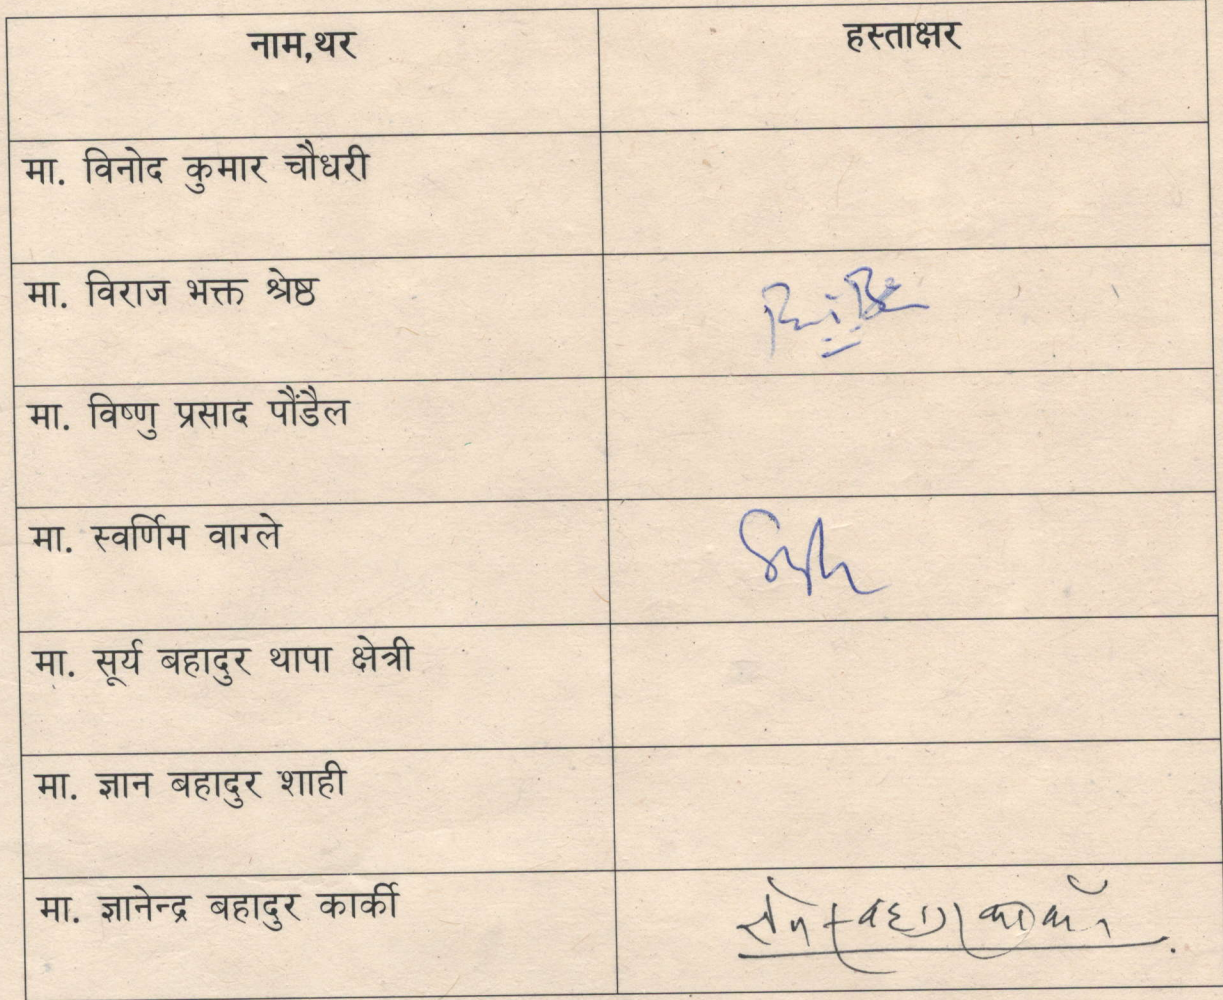 नाम,थर हस्ताक्षर
मा. विनोद कुमार चौधरी
मा. विराज भक्त श्रेष्ठ
मा. विष्णु प्रसाद पौंडैल
मा. स्वर्णिम वाग्ले
मा. सूर्य बहादुर थापा क्षेत्री
मा. ज्ञान बहादुर शाही
मा. ज्ञानेन्द्र बहादुर कार्की